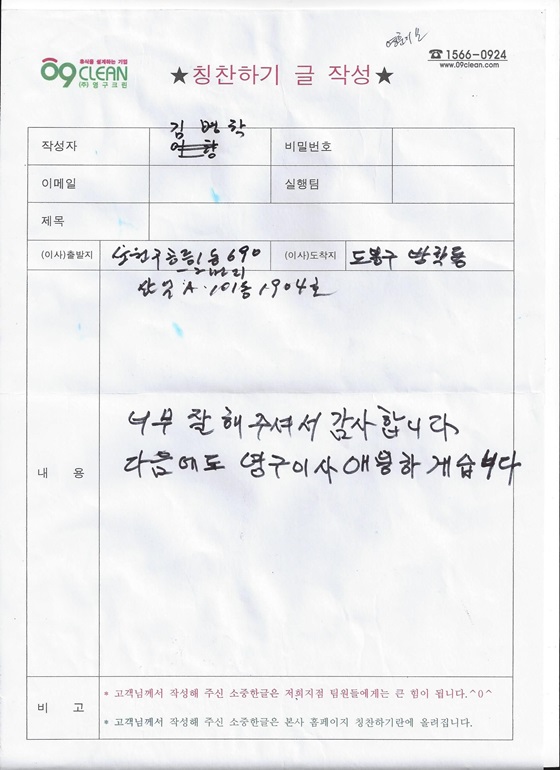 휴식을 설계하는 기업
09CLEAN
(주)영구크린
★칭찬하기 글 작성★
☎1566-0924
www.09clean.com
작성자 김병학 비밀번호
이메일 실행팀
제목
(이사)출발지 690 (이사)도착지 도봉구 방학동
101동 1904호
내 용
너무 잘 해 주셔서 감사 합니다
다음에도 영구이사 애용하 게습니다
비 고
* 고객님께서 작성해 주신 소중한글은 저희지점 팀원들에게는 큰 힘이 됩니다.^0^
* 고객님께서 작성해 주신 소중한글은 본사 홈페이지 칭찬하기란에 올려집니다.